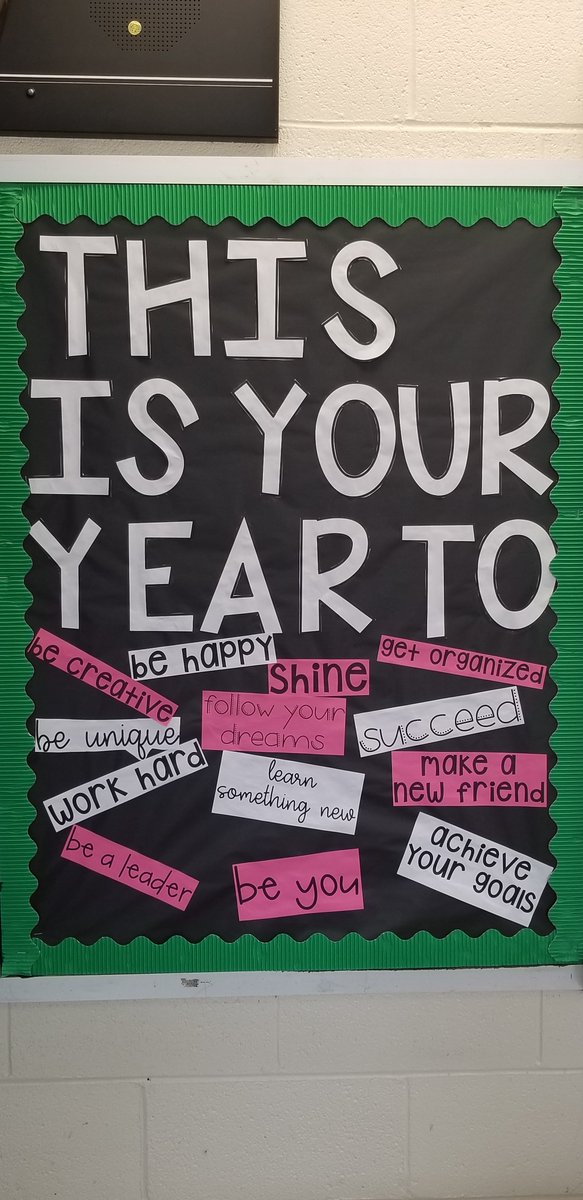 THIS
IS YOUR
YEAR TO
be creative
be happy
get organized
Shine
follow your
dreams
succeed
be unique
work hard
learn
something new
make a
new friend
be a leader
be you
achieve
your goals